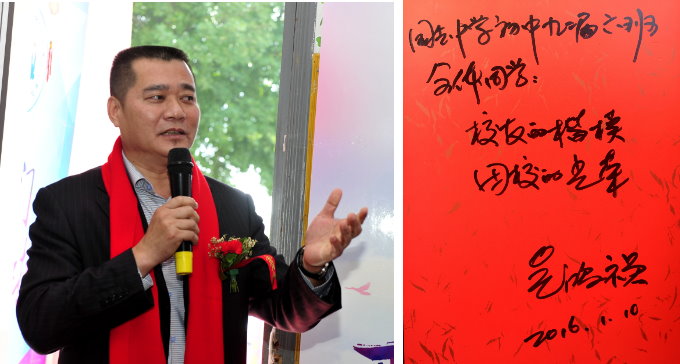 同安中学初中九〇届六班
全体同学:
校友的楷模
母校的光荣
吴
2016.1.10